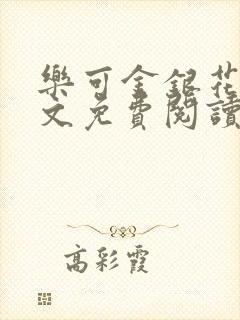 樂可金銀花
文免費閱讀
高彩霞